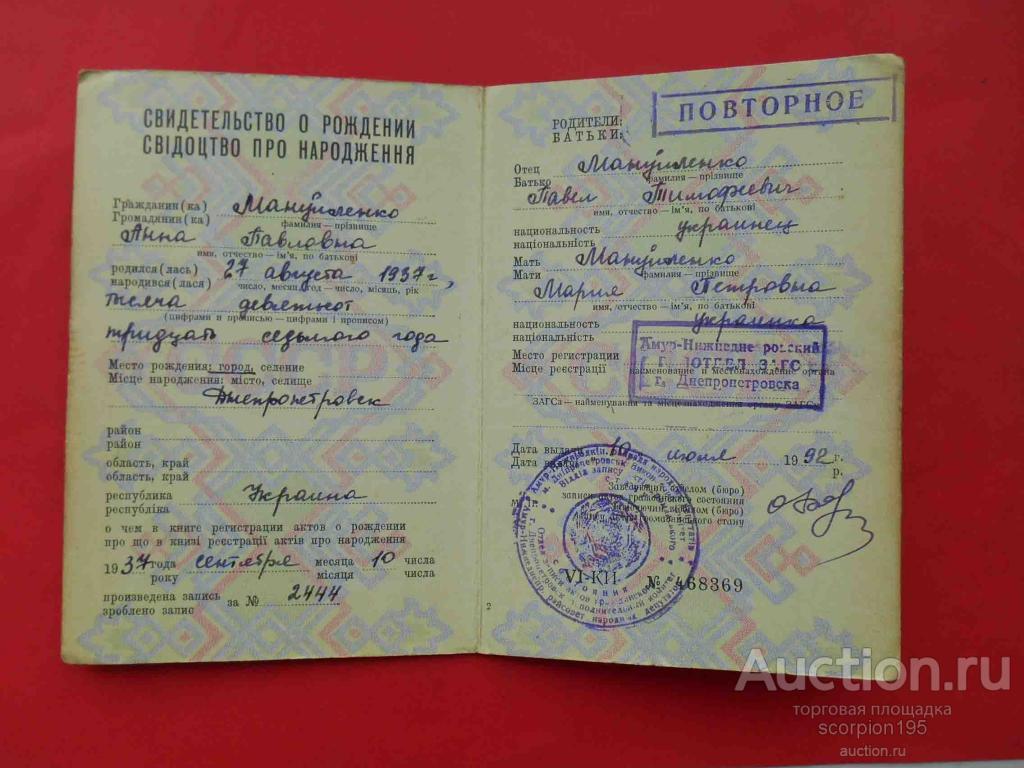 СВИДЕТЕЛЬСТВО О РОЖДЕНИИ
СВІДОЦТВО ПРО НАРОДЖЕННЯ
Гражданин(ка) Мануйленко
Громадянин(ка)
фамилия — прізвище
Анна Павловна
имя, отчество — ім'я, по батькові
родился(лась) 27 августа 1937 г,
народився(лася) число, месяц, год — число, місяць, рік
тысяча девятьсот
(цифрами и прописью — цифрами і прописом)
тридцать седьмого года
Место рождения: город, селение
Місце народження: місто, селище
Днепропетровск
район
район
область, край
область, край
республика Украина
республіка
о чем в книге регистрации актов о рождении
про що в книзі реєстрації актів про народження
1937 года сентября месяца 10 числа
року місяця числа
произведена запись за № 2444
зроблено запис
2
ПОВТОРНОЕ
РОДИТЕЛИ:
БАТЬКИ:
Отец Мануйленко
Батько фамилия — прізвище
Павел Тимофеевич
имя, отчество — ім'я, по батькові
национальность украинец
національність
Мать Мануйленко
Мати фамилия — прізвище
Мария Петровна
имя, отчество — ім'я, по батькові
национальность украинка
національність
Место регистрации
Місце реєстрації наименование и местонахождение органа
ОТДЕЛ ЗАГС
г. Днепропетровска
ЗАГСа — найменування та місцезнаходження органу ЗАГСа
Дата выдачи 10 июля 1992 г.
Дата р.
Заведующий отделом (бюро)
записи актов гражданского состояния
VI-КИ № 468369
Auction.ru
торговая площадка
scorpion195
auction.ru